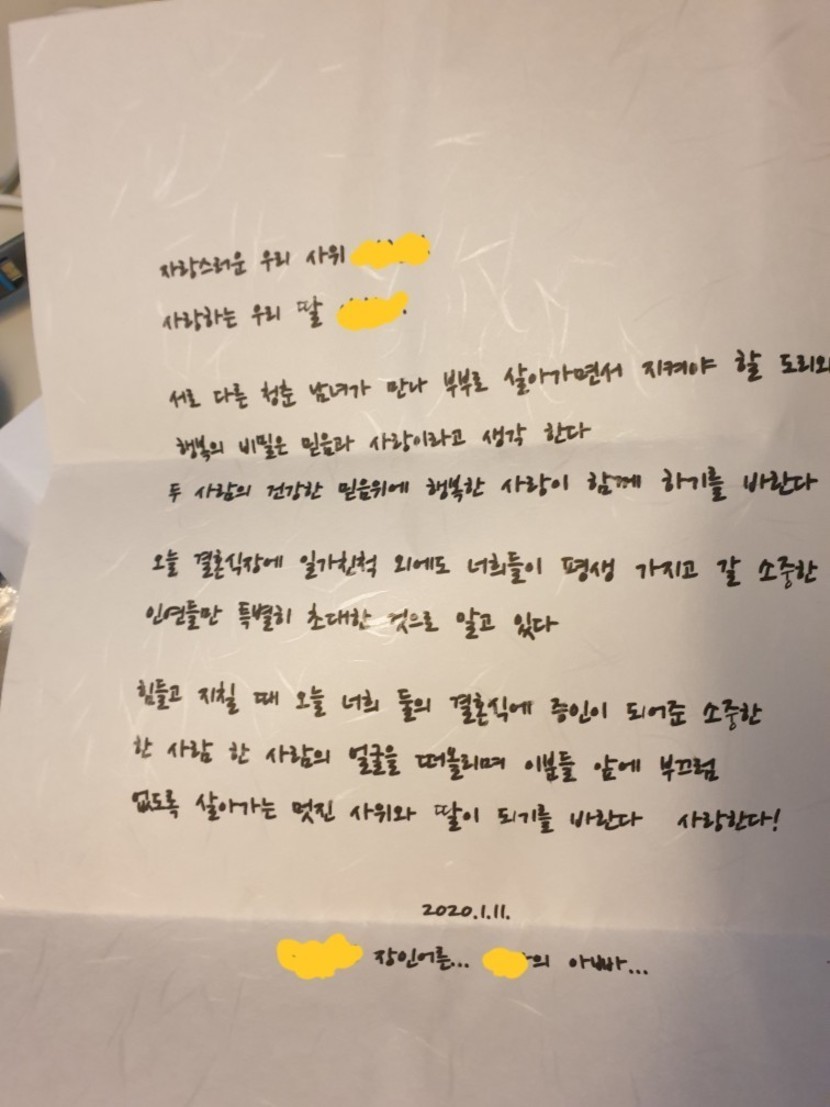 자랑스러운 우리 사위
사랑하는 우리 딸
서로 다른 청춘 남녀가 만나 부부로 살아가면서 지켜야 할 도리와
행복의 비밀은 믿음과 사랑이라고 생각 한다
두 사람의 건강한 믿음위에 행복한 사랑이 함께 하기를 바란다
오늘 결혼식장에 일가친척 외에도 너희들이 평생 가지고 갈 소중한
인연들만 특별히 초대한 것으로 알고 있다
힘들고 지칠 때 오늘 너희 둘의 결혼식에 증인이 되어준 소중한
한 사람 한 사람의 얼굴을 떠올리며 이분들 앞에 부끄럼
없도록 살아가는 멋진 사위와 딸이 되기를 바란다 사랑한다!
2020.1.11.
장인어른... 의 아빠...